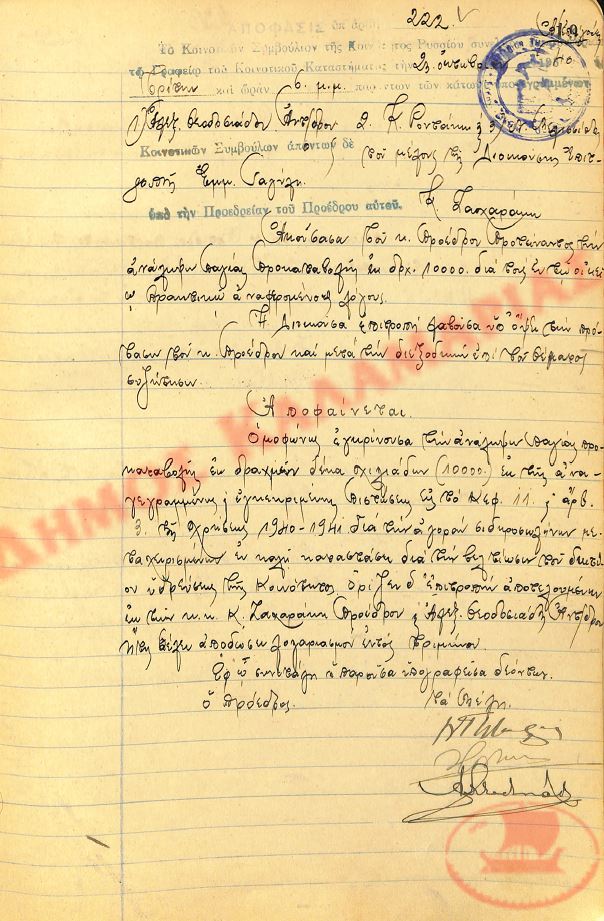 ΑΠΟΦΑΣΙΣ ὑπ' ἀριθ. 222
Τὸ Κοινοτικὸν Συμβούλιον τῆς Κοινότητος Ρυσσίου
τῷ Γραφείῳ τοῦ Κοινοτικοῦ Καταστήματος τὴν 23 ὀκτωβρίου
καὶ ὥραν 6 μ.μ. παρόντων τῶν κάτωθι ὑπογεγραμμένων
1) Ἀλεξ. Θεοδοσιάδου Ἀντ/δρου 2. Κ.
Κοινοτικῶν Συμβούλων ἀπόντων δὲ τοῦ μέλους τῆς Διοικούσης Ἐπιτ
ροπῆς Ἐμμ.
ὑπὸ τὴν Προεδρείαν τοῦ Προέδρου αὐτοῦ. Κ. Ζαχαράκη
Ἀκούσασα τοῦ κ. Προέδρου προτείναντος τὴν
ἀνάληψιν παγίας προκαταβολῆς ἐκ δρχ. 10000. διὰ τοὺς ἐν τῷ οἰκεί
ῳ πρακτικῷ ἀναφερομένους λόγους.
Ἡ Διοικοῦσα ἐπιτροπὴ λαβοῦσα ὑπ' ὄψει τὴν πρό
τασιν τοῦ κ. Προέδρου καὶ μετὰ τὴν διεξοδικὴν ἐπὶ τοῦ θέματος
συζήτησιν.
Ἀποφαίνεται
Ὁμοφώνως ἐγκρίνουσα τὴν ἀνάληψιν παγίας προ
καταβολῆς ἐκ δραχμῶν δέκα χιλιάδων (10000.) ἐκ τῆς ἀνα
γεγραμμένης & ἐγκεκριμένης πιστώσεως εἰς τὸ Κεφ. 11. & ἄρθ.
3. τῆς χρήσεως 1940-1941 διὰ τὴν ἀγορὰν σιδηροσωλήνων με
ταχειρισμένων ἐν καλῇ καταστάσει διὰ τὴν βελτίωσιν τοῦ δικτύ
ου ὑδρεύσεως τῆς Κοινότητος ὁρίζει δ' ἐπιτροπὴν ἀποτελουμένην
ἐκ τῶν κ.κ. Κ. Ζαχαράκη Προέδρου & Ἀλεξ. Θεοδοσιάδη Ἀντ/δρου
ἥτις θέλει ἀποδώσει λογαριασμὸν ἐντὸς τριμήνου.
Ἐφ' ᾧ συνετάγη ἡ παροῦσα ὑπογραφεῖσα δεόντως.
Ὁ Πρόεδρος. Τὰ Μέλη.
ΔΗΜΟΣ ΚΑΛΑΜΑΡΙΑΣ